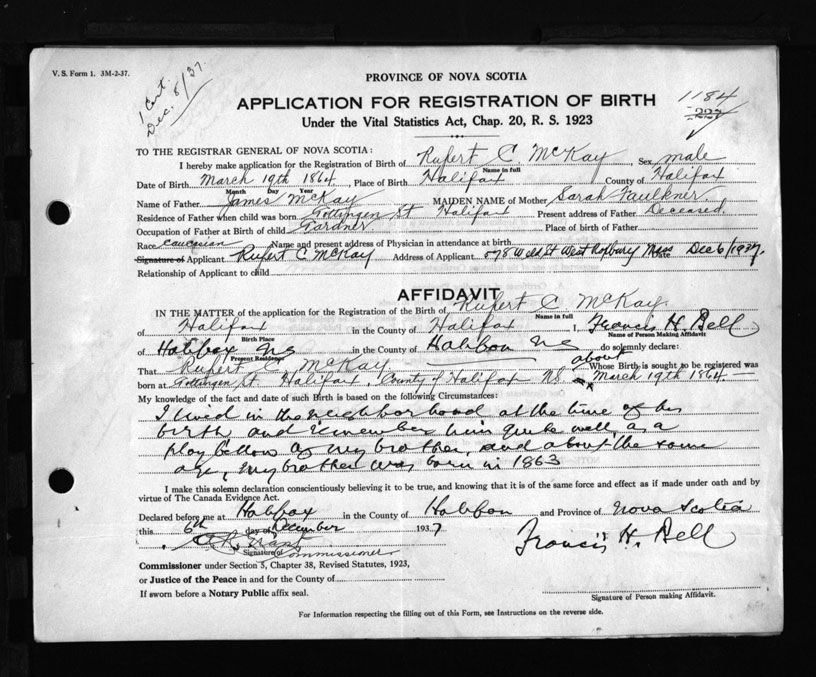 V. S. Form 1. 3M-2-37.
1 Cert.
Dec. 8/37.
PROVINCE OF NOVA SCOTIA
APPLICATION FOR REGISTRATION OF BIRTH
1184
227
Under the Vital Statistics Act, Chap. 20, R. S. 1923
TO THE REGISTRAR GENERAL OF NOVA SCOTIA:
I hereby make application for the Registration of Birth of Rupert C. McKay, Sex male
Name in full
Date of Birth March 19th 1864, Place of Birth Halifax County of Halifax
Month Day Year
Name of Father James McKay MAIDEN NAME of Mother Sarah Faulkner.
Residence of Father when child was born Gottingen St Halifax Present address of Father Deceased.
Occupation of Father at Birth of child Gardner Place of birth of Father
Race caucasian Name and present address of Physician in attendance at birth
Signature of Applicant Rupert C McKay Address of Applicant St West Roxbury Mass Date Dec 6/1937.
Relationship of Applicant to child
AFFIDAVIT
IN THE MATTER of the application for the Registration of the Birth of Rupert C McKay.
Name in full
of Halifax in the County of Halifax I, Francis H. Bell
Birth Place Name of Person Making Affidavit
of Halifax NS in the County of Halifax NS do solemnly declare:
Present Residence
That Rupert C. McKay about Whose Birth is sought to be registered was
born at Gottingen St. Halifax, County of Halifax NS. March 19th 1864.
My knowledge of the fact and date of such Birth is based on the following Circumstances:
I lived in the neighborhood at the time of his
birth and remember him quite well, as a
play fellow of my brother, and about the same
age, my brother was born in 1863
I make this solemn declaration conscientiously believing it to be true, and knowing that it is of the same force and effect as if made under oath and by
virtue of The Canada Evidence Act.
Declared before me at Halifax in the County of Halifax and Province of Nova Scotia
this 6th day of December 1937
Francis H. Bell
Signature of Commissioner
Commissioner under Section 5, Chapter 38, Revised Statutes, 1923,
or Justice of the Peace in and for the County of
If sworn before a Notary Public affix seal.
Signature of Person making Affidavit.
For Information respecting the filling out of this Form, see Instructions on the reverse side.